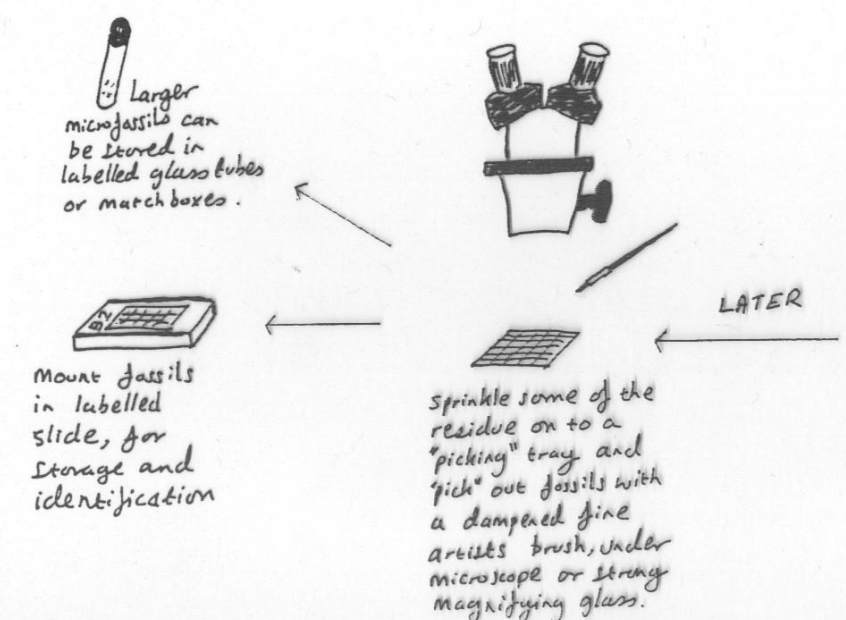 Larger
microfossils can
be stored in
labelled glass tubes
or matchboxes.
LATER
B2
Mount fossils
in labelled
slide, for
storage and
identification
Sprinkle some of the
residue on to a
"picking" tray and
"pick" out fossils with
a dampened fine
artists brush, under
microscope or strong
magnifying glass.